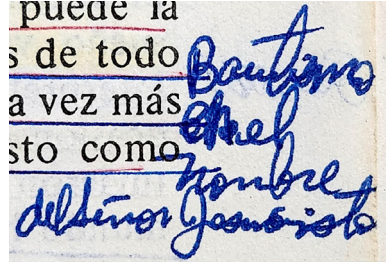 puede la
s de todo
a vez más
sto como
Bautismo
en el
nombre
del señor Jesucristo